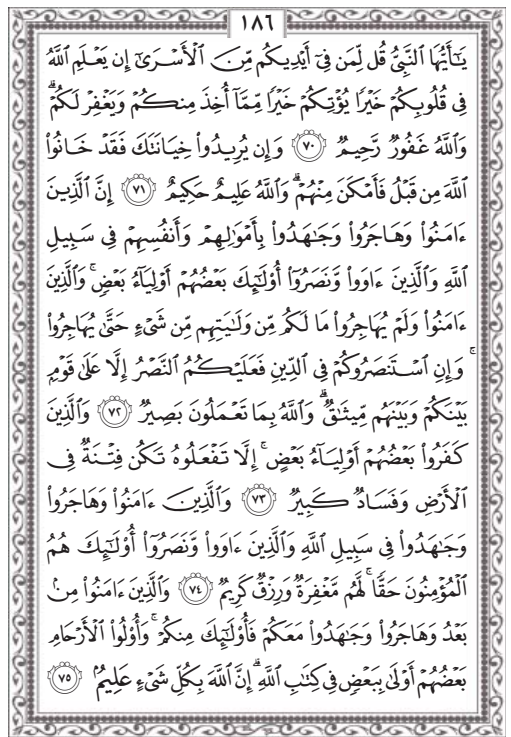 ١٨٦
يَٰٓأَيُّهَا ٱلنَّبِىُّ قُل لِّمَن فِىٓ أَيْدِيكُم مِّنَ ٱلْأَسْرَىٰٓ إِن يَعْلَمِ ٱللَّهُ
فِى قُلُوبِكُمْ خَيْرًا يُؤْتِكُمْ خَيْرًا مِّمَّآ أُخِذَ مِنكُمْ وَيَغْفِرْ لَكُمْ ۗ
وَٱللَّهُ غَفُورٌ رَّحِيمٌ ٧٠ وَإِن يُرِيدُوا۟ خِيَانَتَكَ فَقَدْ خَانُوا۟
ٱللَّهَ مِن قَبْلُ فَأَمْكَنَ مِنْهُمْ ۗ وَٱللَّهُ عَلِيمٌ حَكِيمٌ ٧١ إِنَّ ٱلَّذِينَ
ءَامَنُوا۟ وَهَاجَرُوا۟ وَجَٰهَدُوا۟ بِأَمْوَٰلِهِمْ وَأَنفُسِهِمْ فِى سَبِيلِ
ٱللَّهِ وَٱلَّذِينَ ءَاوَوا۟ وَّنَصَرُوٓا۟ أُو۟لَٰٓئِكَ بَعْضُهُمْ أَوْلِيَآءُ بَعْضٍ ۚ وَٱلَّذِينَ
ءَامَنُوا۟ وَلَمْ يُهَاجِرُوا۟ مَا لَكُم مِّن وَلَٰيَتِهِم مِّن شَىْءٍ حَتَّىٰ يُهَاجِرُوا۟
ۚ وَإِنِ ٱسْتَنصَرُوكُمْ فِى ٱلدِّينِ فَعَلَيْكُمُ ٱلنَّصْرُ إِلَّا عَلَىٰ قَوْمٍۭ
بَيْنَكُمْ وَبَيْنَهُم مِّيثَٰقٌ ۗ وَٱللَّهُ بِمَا تَعْمَلُونَ بَصِيرٌ ٧٢ وَٱلَّذِينَ
كَفَرُوا۟ بَعْضُهُمْ أَوْلِيَآءُ بَعْضٍ ۚ إِلَّا تَفْعَلُوهُ تَكُن فِتْنَةٌ فِى
ٱلْأَرْضِ وَفَسَادٌ كَبِيرٌ ٧٣ وَٱلَّذِينَ ءَامَنُوا۟ وَهَاجَرُوا۟
وَجَٰهَدُوا۟ فِى سَبِيلِ ٱللَّهِ وَٱلَّذِينَ ءَاوَوا۟ وَّنَصَرُوٓا۟ أُو۟لَٰٓئِكَ هُمُ
ٱلْمُؤْمِنُونَ حَقًّا ۚ لَّهُم مَّغْفِرَةٌ وَرِزْقٌ كَرِيمٌ ٧٤ وَٱلَّذِينَ ءَامَنُوا۟ مِنۢ
بَعْدُ وَهَاجَرُوا۟ وَجَٰهَدُوا۟ مَعَكُمْ فَأُو۟لَٰٓئِكَ مِنكُمْ ۚ وَأُو۟لُوا۟ ٱلْأَرْحَامِ
بَعْضُهُمْ أَوْلَىٰ بِبَعْضٍ فِى كِتَٰبِ ٱللَّهِ ۗ إِنَّ ٱللَّهَ بِكُلِّ شَىْءٍ عَلِيمٌۢ ٧٥